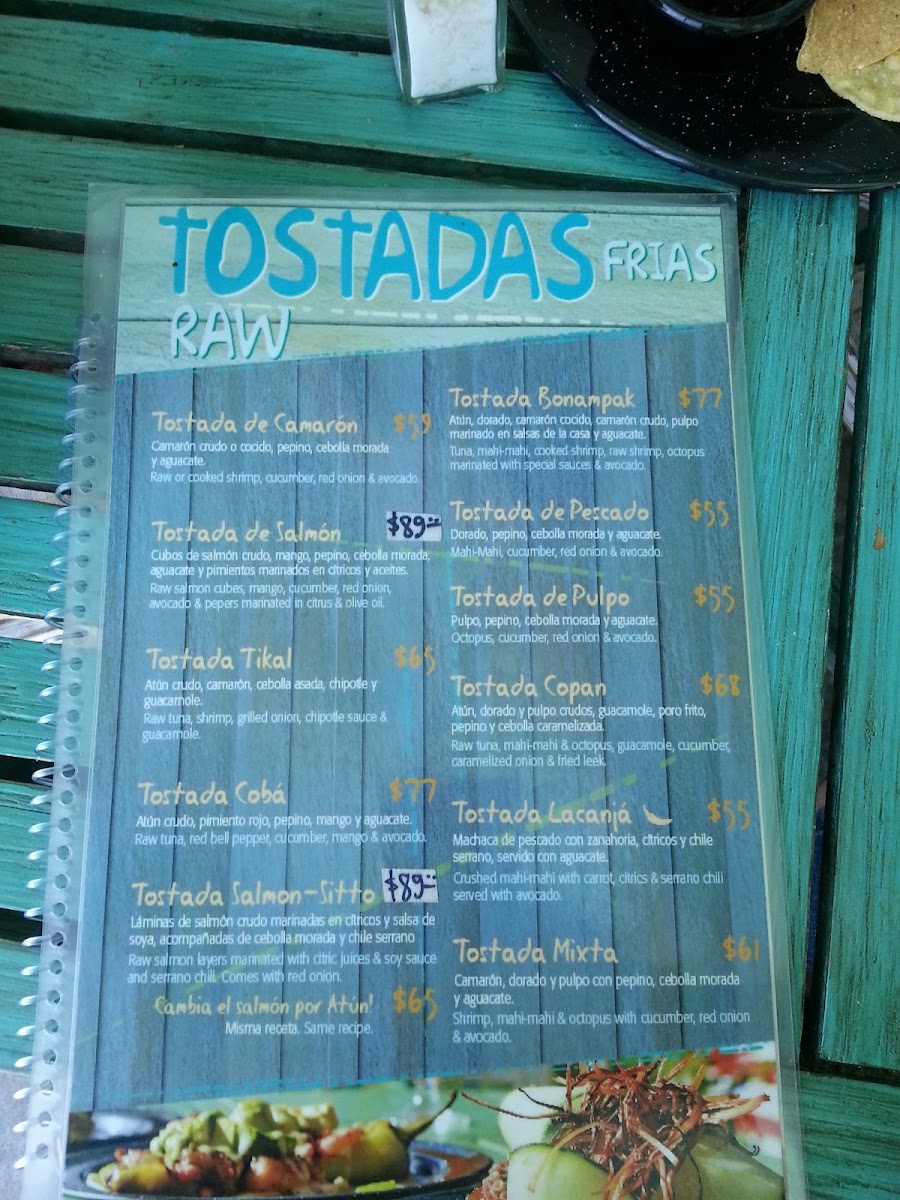 TOSTADAS FRIAS
RAW
Tostada de Camarón $59
Camarón crudo o cocido, pepino, cebolla morada
y aguacate.
Raw or cooked shrimp, cucumber, red onion & avocado.
Tostada de Salmón $89
Cubos de salmón crudo, mango, pepino, cebolla morada,
aguacate y pimientos marinados en cítricos y aceites.
Raw salmon cubes, mango, cucumber, red onion,
avocado & pepers marinated in citrus & olive oil.
Tostada Tikal $65
Atún crudo, camarón, cebolla asada, chipotle y
guacamole.
Raw tuna, shrimp, grilled onion, chipotle sauce &
guacamole.
Tostada Cobá $77
Atún crudo, pimiento rojo, pepino, mango y aguacate.
Raw tuna, red bell pepper, cucumber, mango & avocado.
Tostada Salmon-Sitto $89
Láminas de salmón crudo marinadas en cítricos y salsa de
soya, acompañadas de cebolla morada y chile serrano
Raw salmon layers marinated with citric juices & soy sauce
and serrano chili. Comes with red onion.
Cambia el salmón por Atún! $65
Misma receta. Same recipe.
Tostada Bonampak $77
Atún, dorado, camarón cocido, camarón crudo, pulpo
marinado en salsas de la casa y aguacate.
Tuna, mahi-mahi, cooked shrimp, raw shrimp, octopus
marinated with special sauces & avocado.
Tostada de Pescado $55
Dorado, pepino, cebolla morada y aguacate.
Mahi-Mahi, cucumber, red onion & avocado.
Tostada de Pulpo $55
Pulpo, pepino, cebolla morada y aguacate.
Octopus, cucumber, red onion & avocado.
Tostada Copan $68
Atún, dorado y pulpo crudos, guacamole, poro frito,
pepino y cebolla caramelizada.
Raw tuna, mahi-mahi & octopus, guacamole, cucumber,
caramelized onion & fried leek.
Tostada Lacanjá $55
Machaca de pescado con zanahoria, cítricos y chile
serrano, servido con aguacate.
Crushed mahi-mahi with carrot, citrics & serrano chili
served with avocado.
Tostada Mixta $61
Camarón, dorado y pulpo con pepino, cebolla morada
y aguacate.
Shrimp, mahi-mahi & octopus with cucumber, red onion
& avocado.